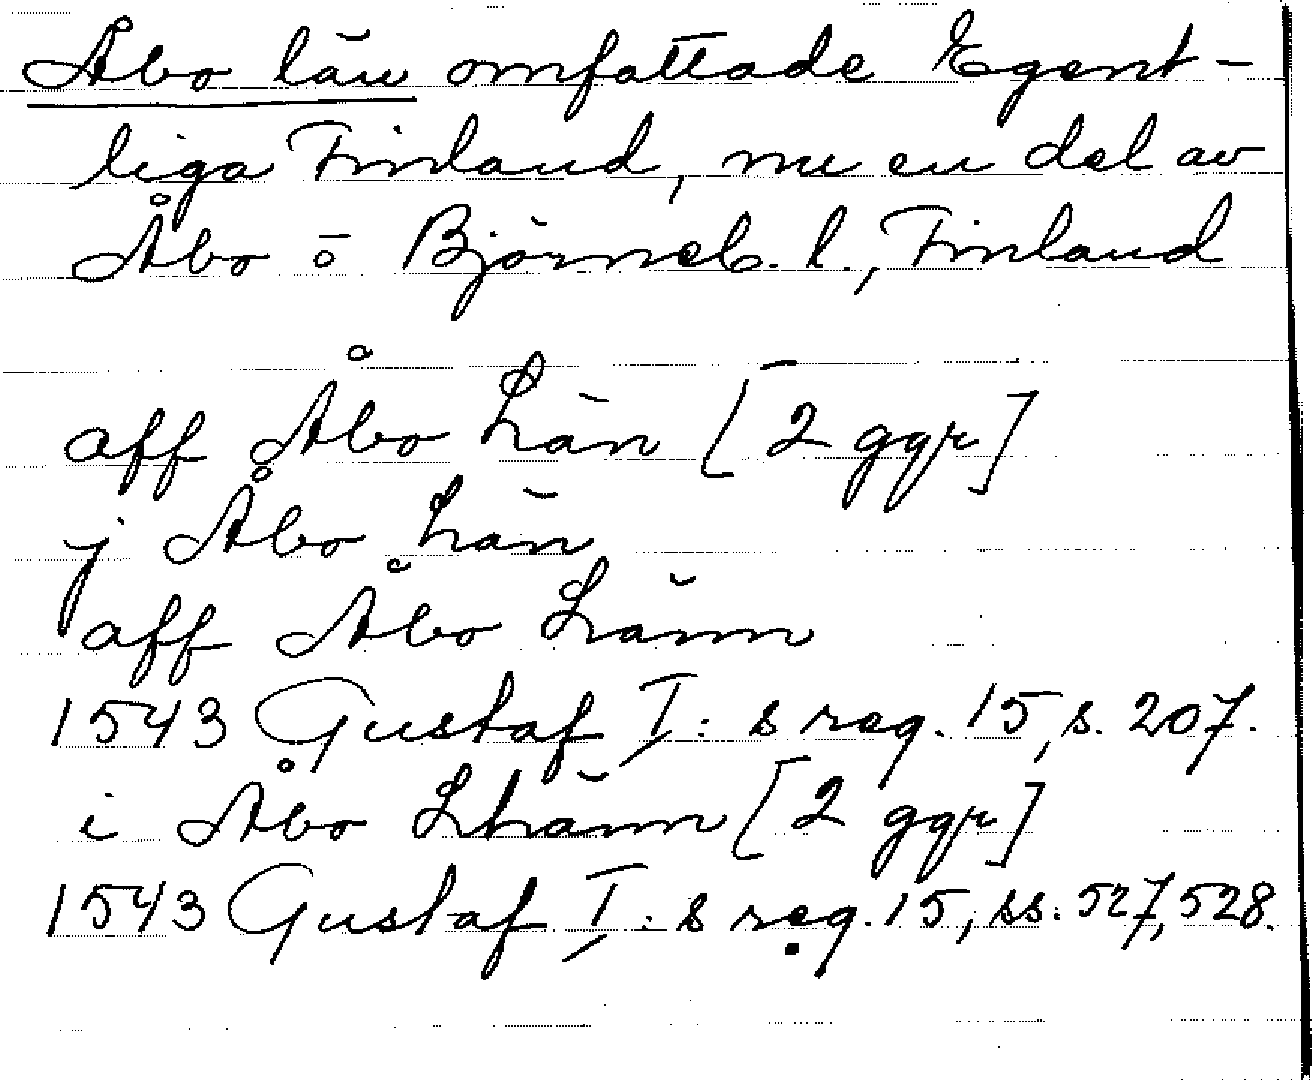 Åbo län omfattade Egent-
liga Finland, nu en del av
Åbo o Björneb. l., Finland
aff Åbo Län [2 ggr]
j Åbo Län
aff Åbo Länn
1543 Gustaf I: s reg. 15, s. 207.
i Åbo Lhänn [2 ggr]
1543 Gustaf I: s reg. 15, ss. 527, 528.